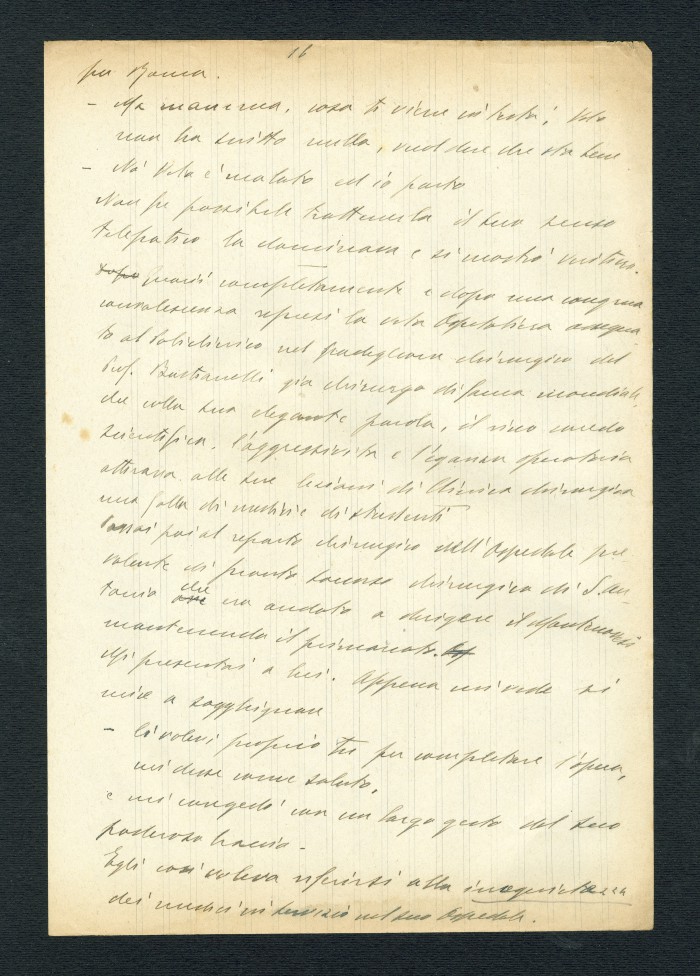 16
per Roma.
- Ma mammina, cosa ti viene in testa? Vito
non ha scritto nulla, vuol dire che sta bene
- No Vito è malato ed io parto
Non fu possibile trattenerla il suo senso
telepatico la dominava e si mostrò
dopo Guarii completamente e dopo una congrua
convalescenza ripresi la vita Ospitaliera assegna
to al Policlinico nel padiglione chirurgico del
Prof. Bastianelli già chirurgo di fama mondiale,
che colla sua elegante parola, il ricco corredo
scientifico, l'aggressività e l'eganza operatoria
attirava alle sue lezioni di Clinica chirurgica
una folla di medici e di studenti
Passai poi al reparto chirurgico dell'Ospedale pre
valente di pronto soccorso chirurgico di S. An
tonio che era andato a dirigere il
mantenendo il primariato.
Mi presentai a lui. Appena mi vide si
mise a sogghignare
- Ci volevi proprio tu per completare l'opera,
mi disse come saluto,
e mi congedò con un largo gesto del suo
poderoso braccio.
Egli così voleva riferirsi alla
dei medici in servizio nel suo Ospedale.